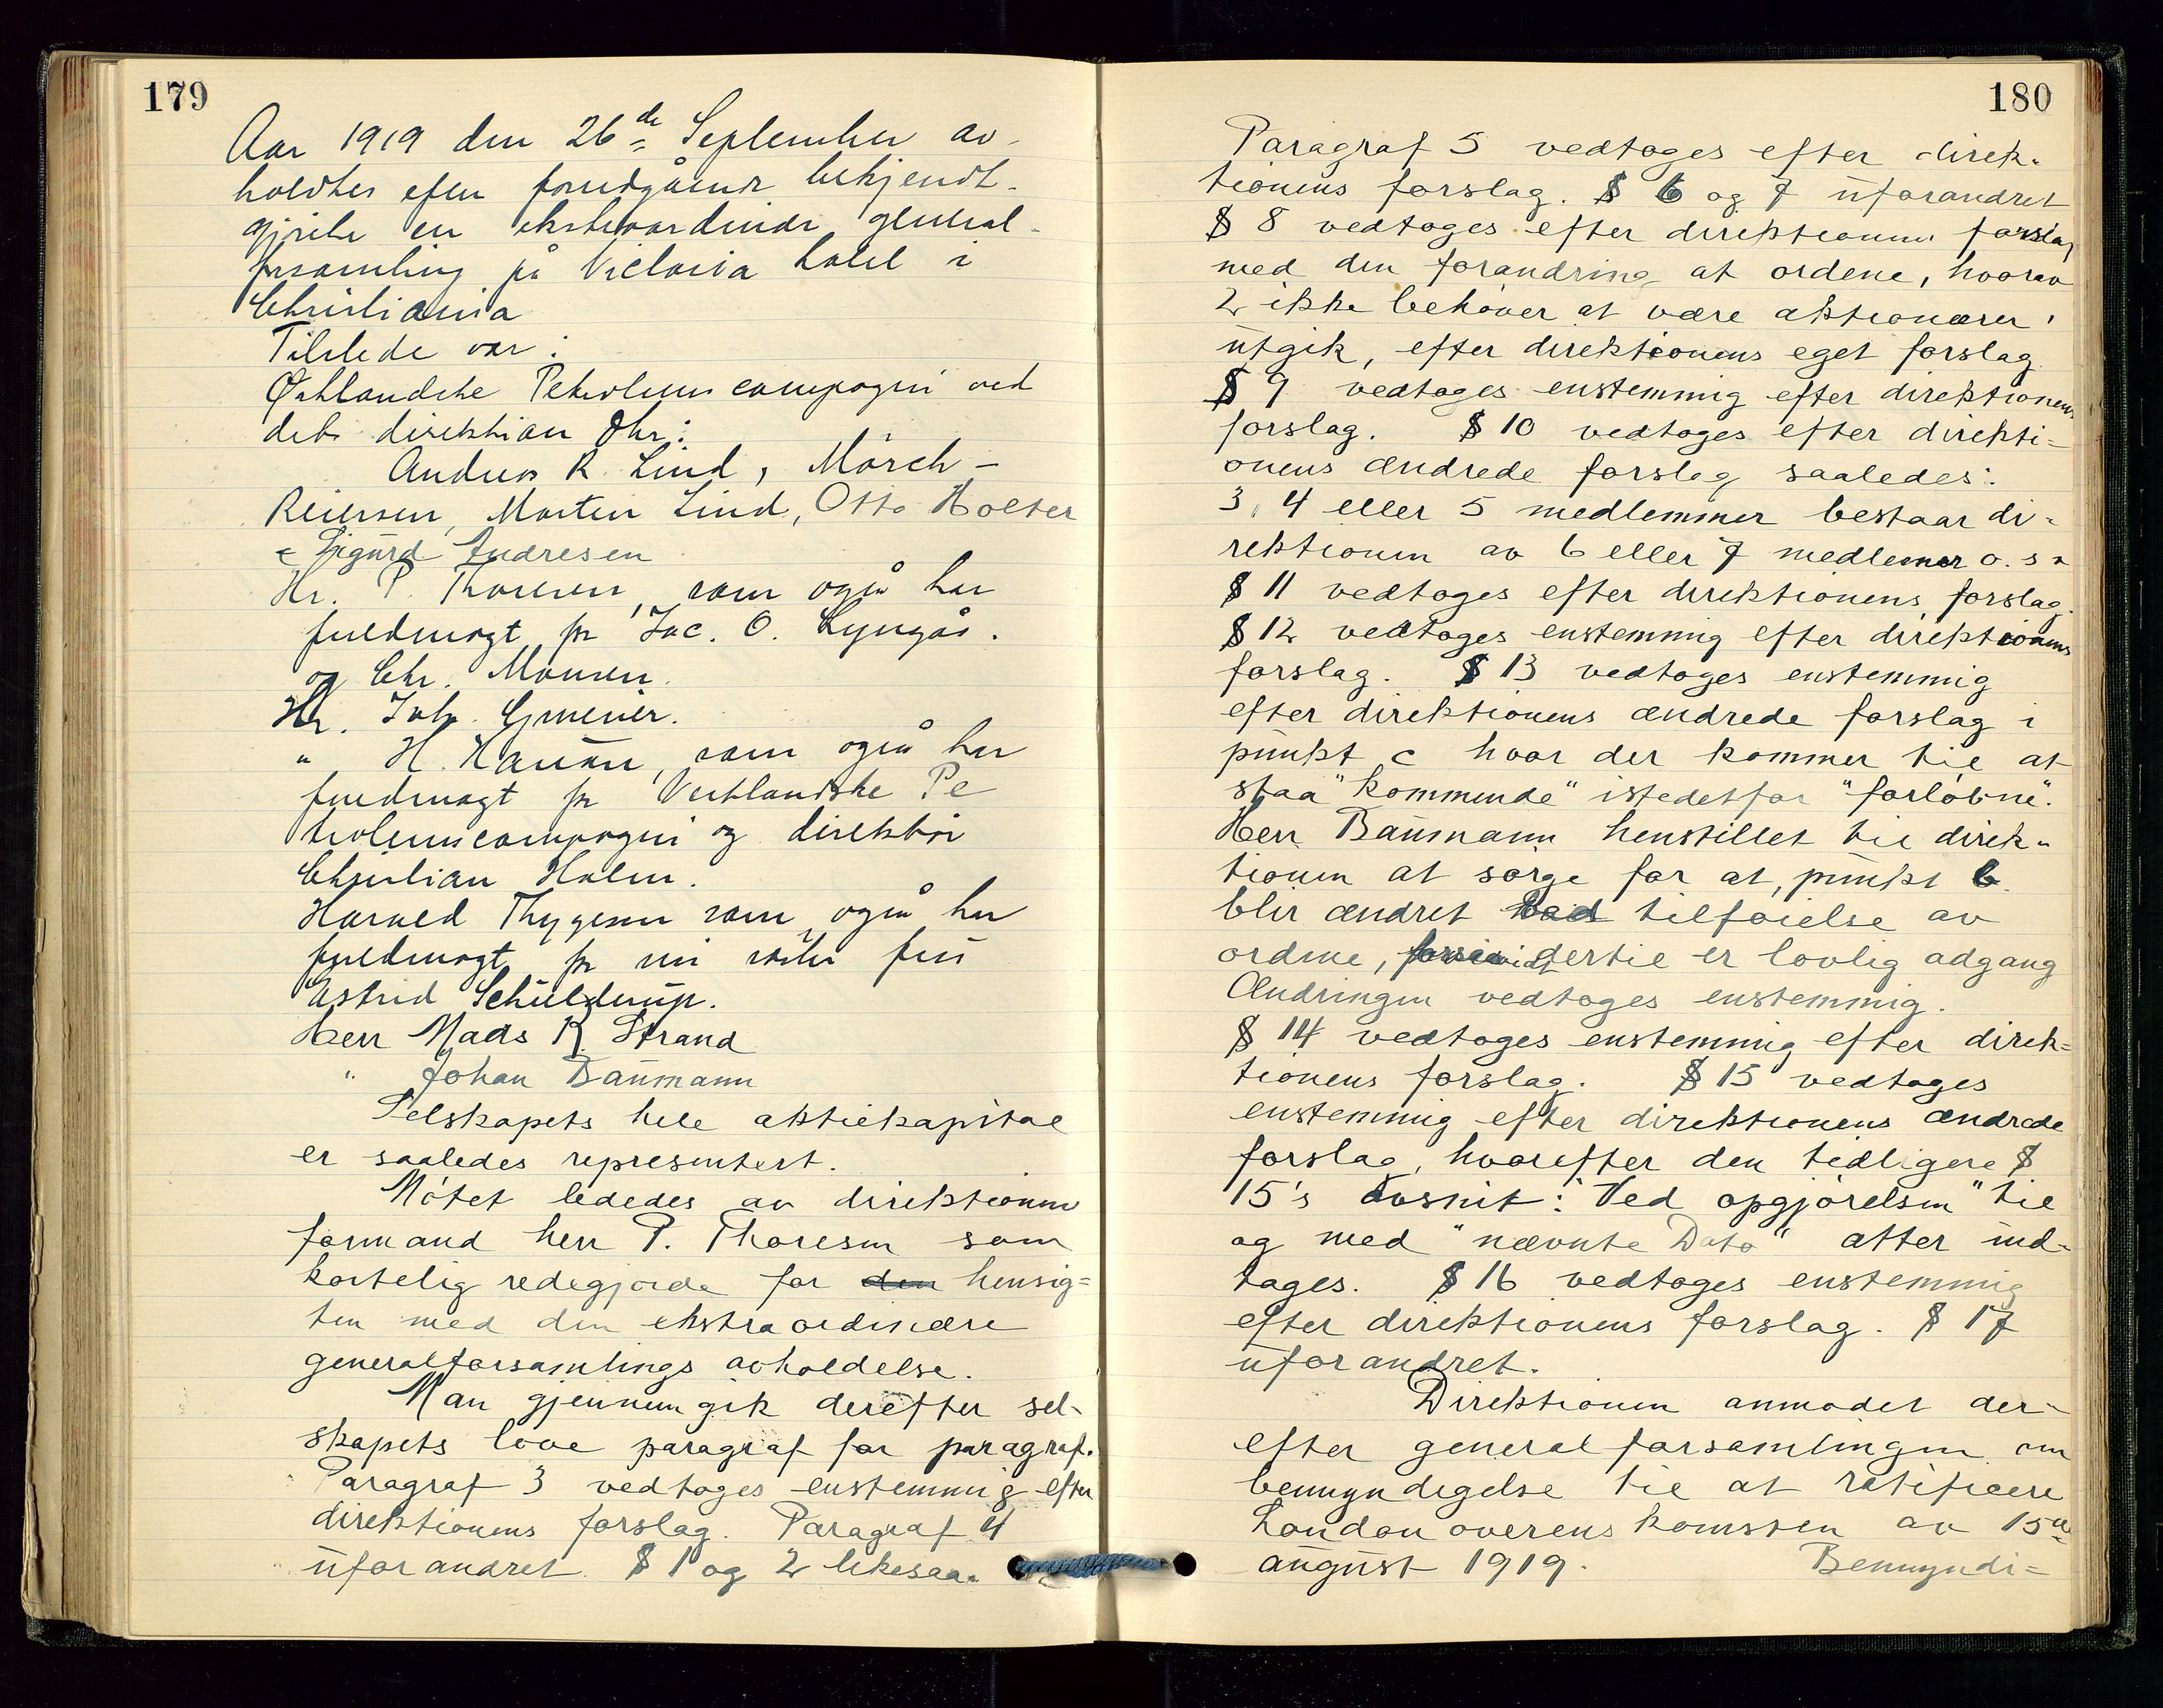 179
Aar 1919 den 26de September av-
holdtes efter forudgående bekjendt-
gjörelse en ekstraordinær general-
forsamling på Victoria Hotel i
Christiania
Tilstede var:
Östlandske Petroleumscompagni ved
dets direktion Dhr:
Anders R. Lind, Mörch-
Reiersen, Morten Lind, Otto Holter
& Sigurd Andresen
Hr. P. Thoresen, som også har
fuldmagt for Jac. O. Lyngås.
og Chr. Monsen.
Hr. Joh. Gmeiner.
" H. Hansen, som også har
fuldmagt for Vestlandske Pe
troleumscompagni og direktör
Christian Holm.
Harald Thygesen som også har
fuldmagt for sin söster fru
Astrid Schüldrup.
Herr Mads R. Strand
" Johan Baumann
Selskapets hele aktiekapital
er saaledes representert.
Mötet lededes av direktionens
formand herr P. Thoresen som
kortelig redegjorde for den hensig=
ten med den ekstraordinære
generalforsamlings avholdelse.
Man gjennemgik derefter sel-
skapets love paragraf for paragraf.
Paragraf 3 vedtoges enstemmig efter
direktionens forslag. Paragraf 4
uforandret. § 1 og 2 likesaa.
180
Paragraf 5 vedtoges efter direk-
tionens forslag. § 6 og 7 uforandret
§ 8 vedtoges efter direktionens forslag
med den forandring at ordene, hvorav
2 ikke behöver at være aktionærer'
utgik, efter direktionens eget forslag
§ 9 vedtoges enstemmig efter direktionens
forslag. § 10 vedtoges efter direkti=
onens ændrede forslag saaledes:
3, 4 eller 5 medlemmer bestaar di-
rektionen av 6 eller 7 medlemer o.s.v
§ 11 vedtoges efter direktionens forslag.
§ 12 vedtoges enstemmig efter direktionens
forslag. § 13 vedtoges enstemmig
efter direktionens ændrede forslag i
punkt c hvor der kommer til at
staa "kommende" istedetfor "forlöbne".
Herr Baumann henstillet til direk-
tionen at sörge for at, punkt 6
blir ændret ved tilföielse av
ordene, forsaavidt dertil er lovlig adgang
Ændringen vedtoges enstemmig.
§ 14 vedtoges enstemmig efter direk=
tionens forslag. § 15 vedtoges
enstemmig efter direktionens ændrede
forslag, hvorefter den tidligere §
15's avsnit: "Ved opgjörelsen" til
og med "nævnte Dato" atter ind-
tages. § 16 vedtoges enstemmig
efter direktionens forslag. § 17
uforandret.
Direktionen anmodet der-
efter generalforsamlingen om
bemyndigelse til at ratificere
Londonoverenskomsten av 15de
august 1919. Bemyndi=